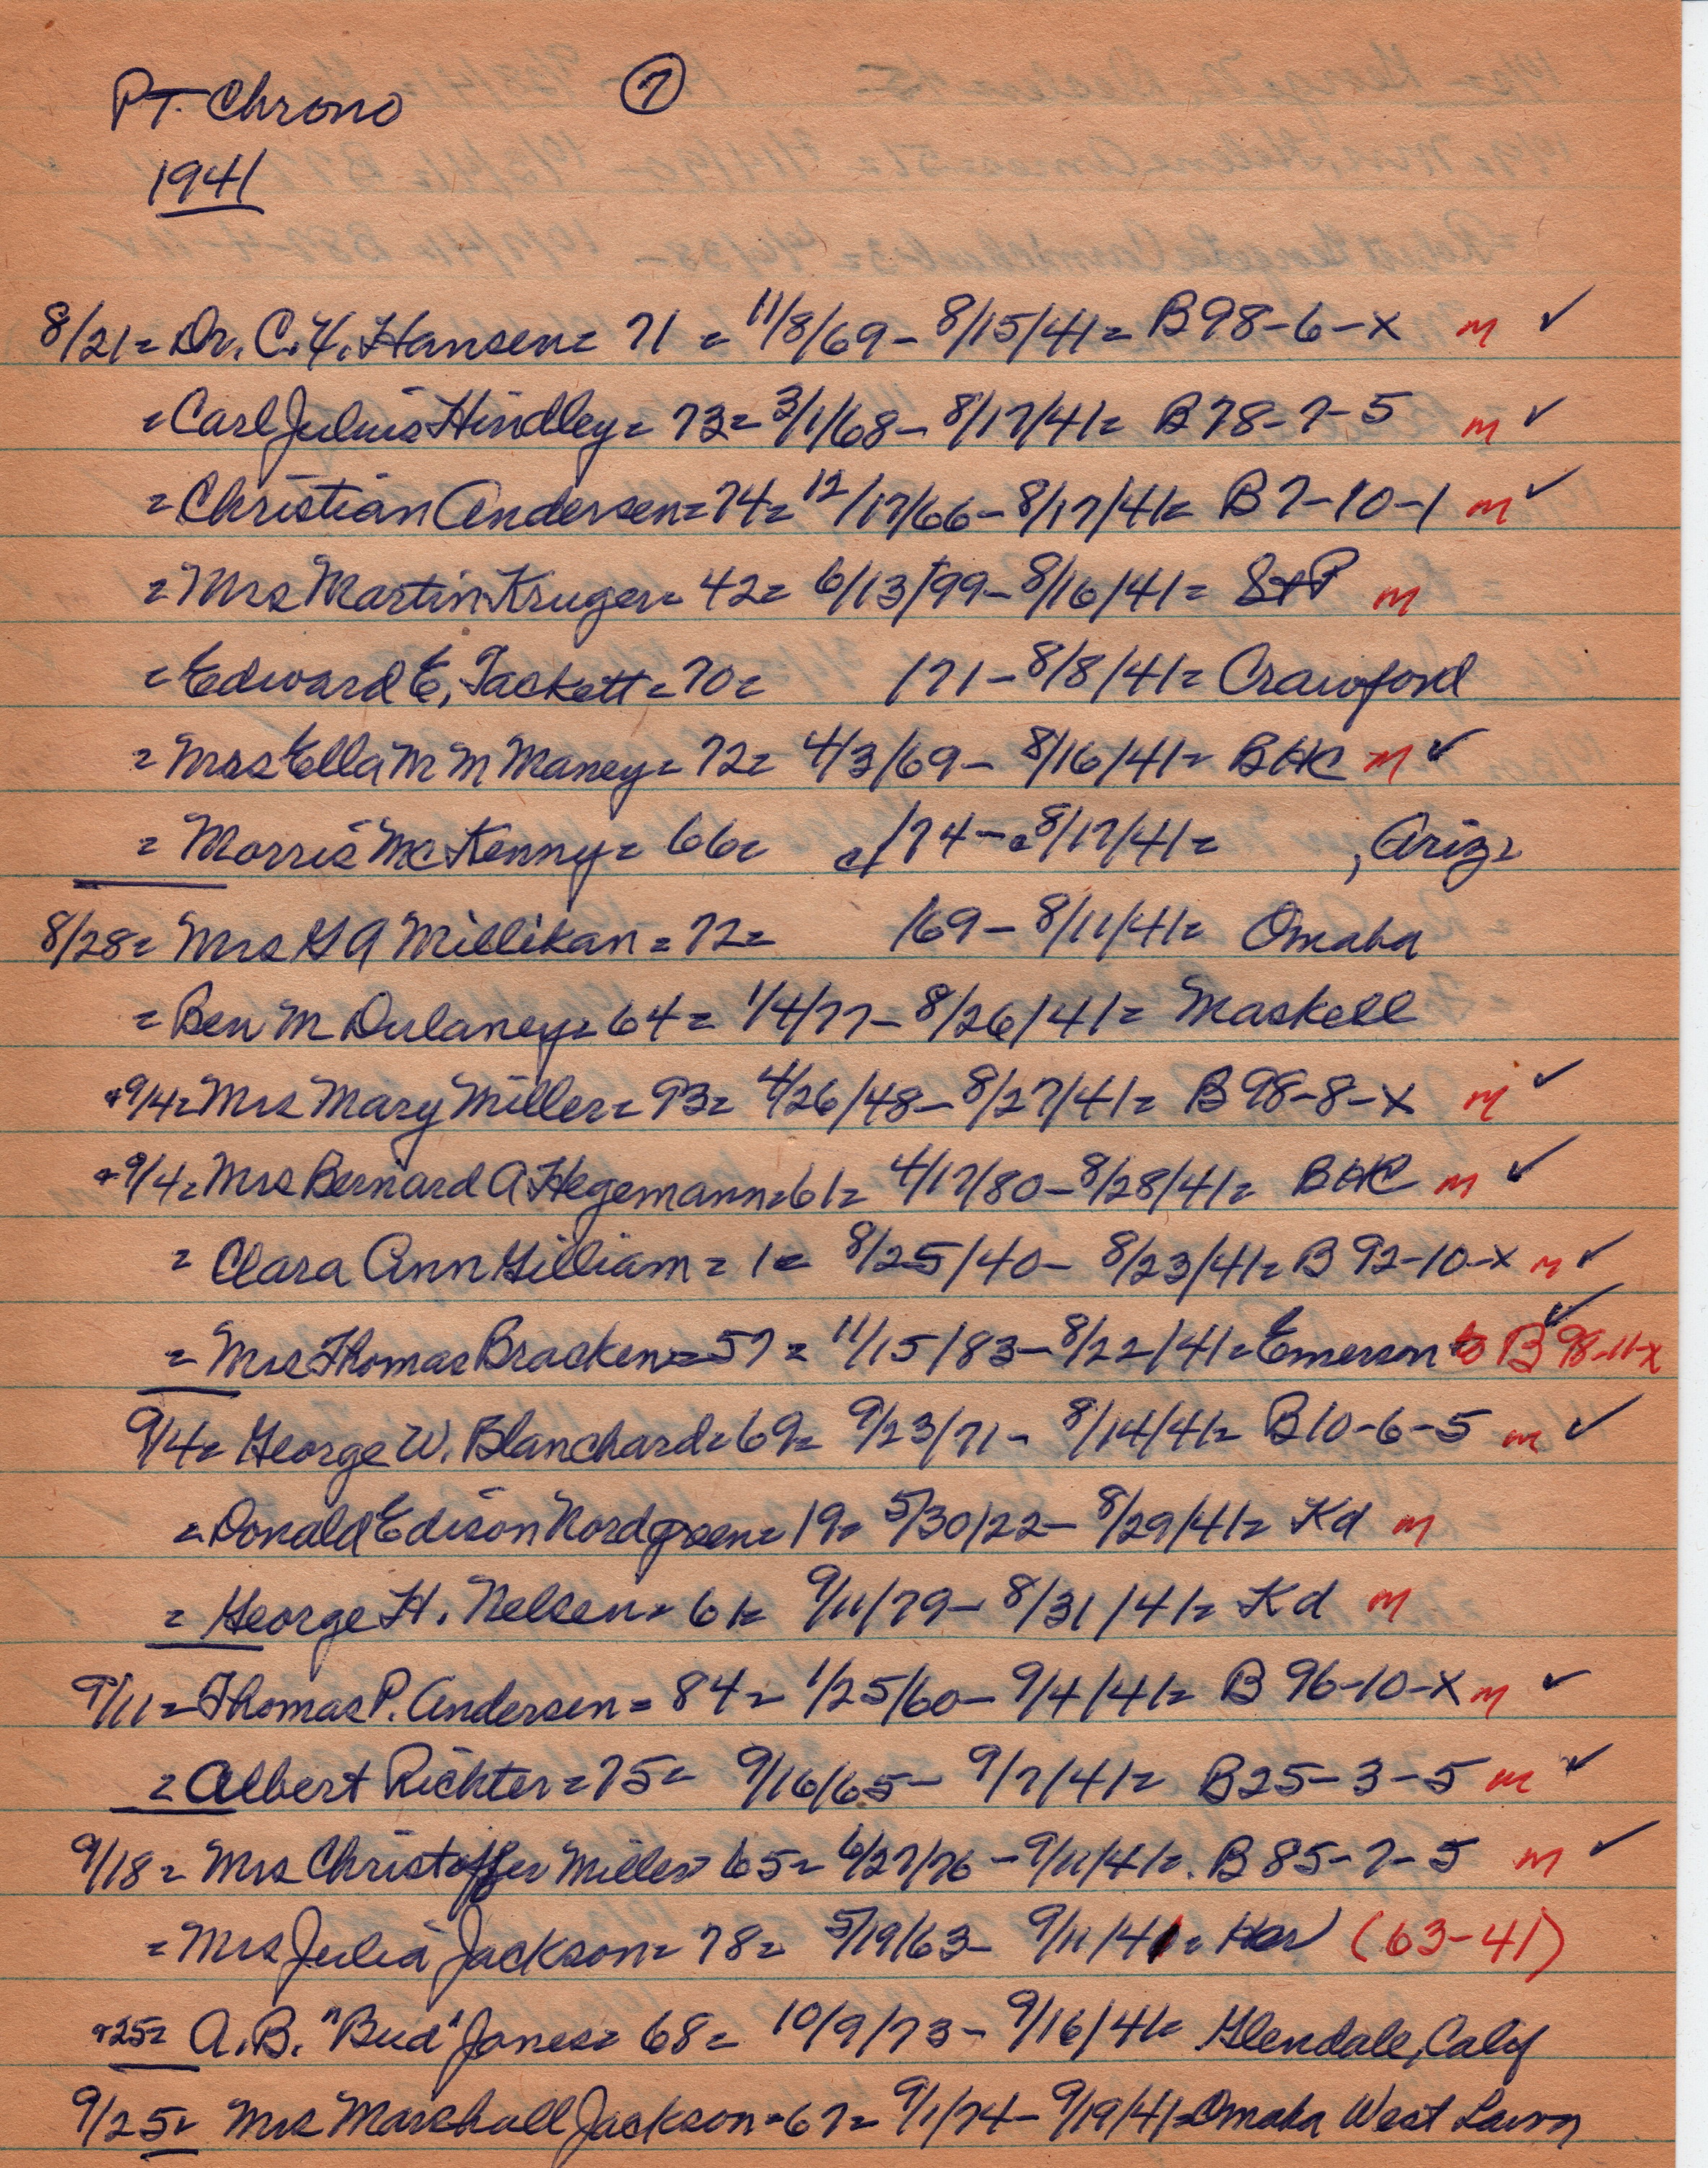 PT. Chrono 7
1941
8/21= Dr. C. H. Hansen= 71 = 11/8/69- 8/15/41= B98-6-x m ✓
=Carl Julius Hindley= 73= 3/1/68- 8/17/41= B78-7-5 m ✓
=Christian Andersen=74= 12/17/66- 8/17/41= B7-10-1 m ✓
=Mrs Martin Kruger= 42= 6/13/99- 8/16/41= StP m
=Edward E. Tackett= 70= /71- 8/8/41= Crawford
=Mrs Ella M M Maney= 72= 4/3/69- 8/16/41= BHC m ✓
=Morris McKenny= 66= c/74- c8/17/41= , Ariz=
8/28= Mrs G A Millikan= 72= /69- 8/11/41= Omaha
=Ben M Dulaney= 64= 1/4/77- 8/26/41= Maskell
+9/4= Mrs Mary Miller= 93= 4/26/48- 8/27/41= B98-8-x m ✓
+9/4= Mrs Bernard A Hegemann=61= 4/17/80- 8/28/41= BHC m ✓
= Clara Ann Gilliam= 1= 8/25/40- 8/23/41= B92-10-x m ✓
= Mrs Thomas Bracken=57= 11/15/83- 8/22/41=Emerson to B98-11-x ✓
9/4= George W. Blanchard=69= 9/23/71- 8/14/41= B10-6-5 m ✓
=Donald Edison Nordgreen= 19= 5/30/22- 8/29/41= Kd m
= George H. Nelsen= 61= 9/11/79- 8/31/41= Kd m
9/11= Thomas P. Andersen= 84= 1/25/60- 9/4/41= B96-10-x m ✓
=Albert Richter=75= 9/16/65- 9/7/41= B25-3-5 m ✓
9/18= Mrs Christoffer Miller= 65= 6/27/76- 9/11/41=. B85-7-5 m ✓
=Mrs Julia Jackson= 78= 5/19/63- 9/11/41= Her (63-41)
+25= A.B. "Bud" Jones= 68= 10/9/73- 9/16/41= Glendale, Calif
9/25= Mrs Marshall Jackson=67= 9/1/74- 9/19/41=Omaha West Lawn